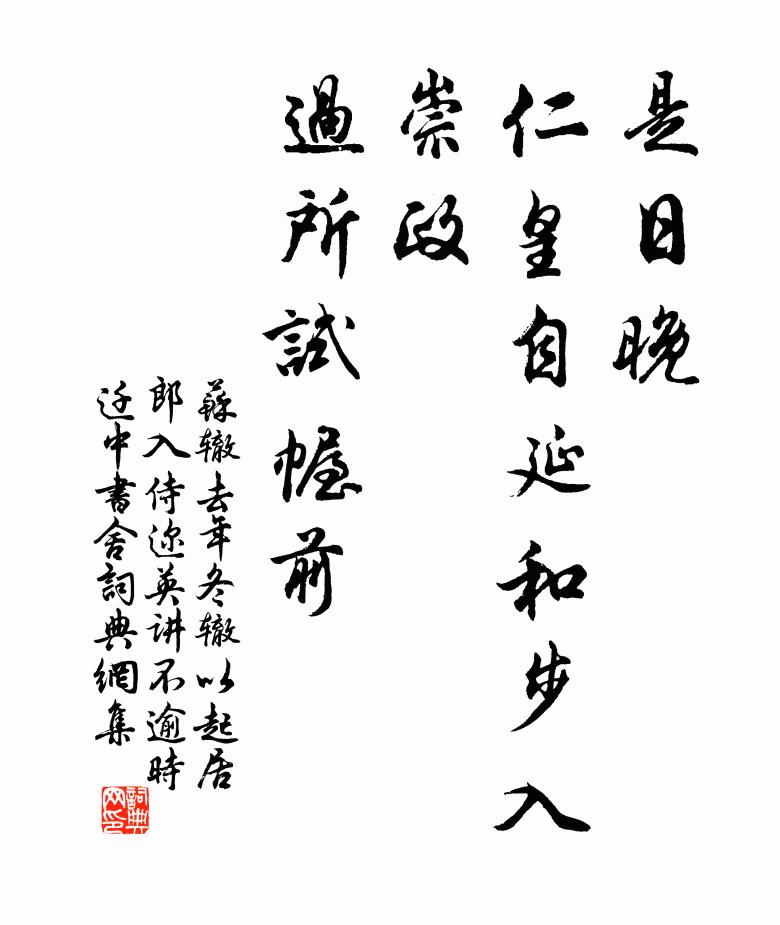 是日晚
仁皇自延和步入
崇政
過所試幄前
蘇辙去年冬辙以起居
郎入侍迩英讲不逾時
迁中書舍詞典網集
詞典网印